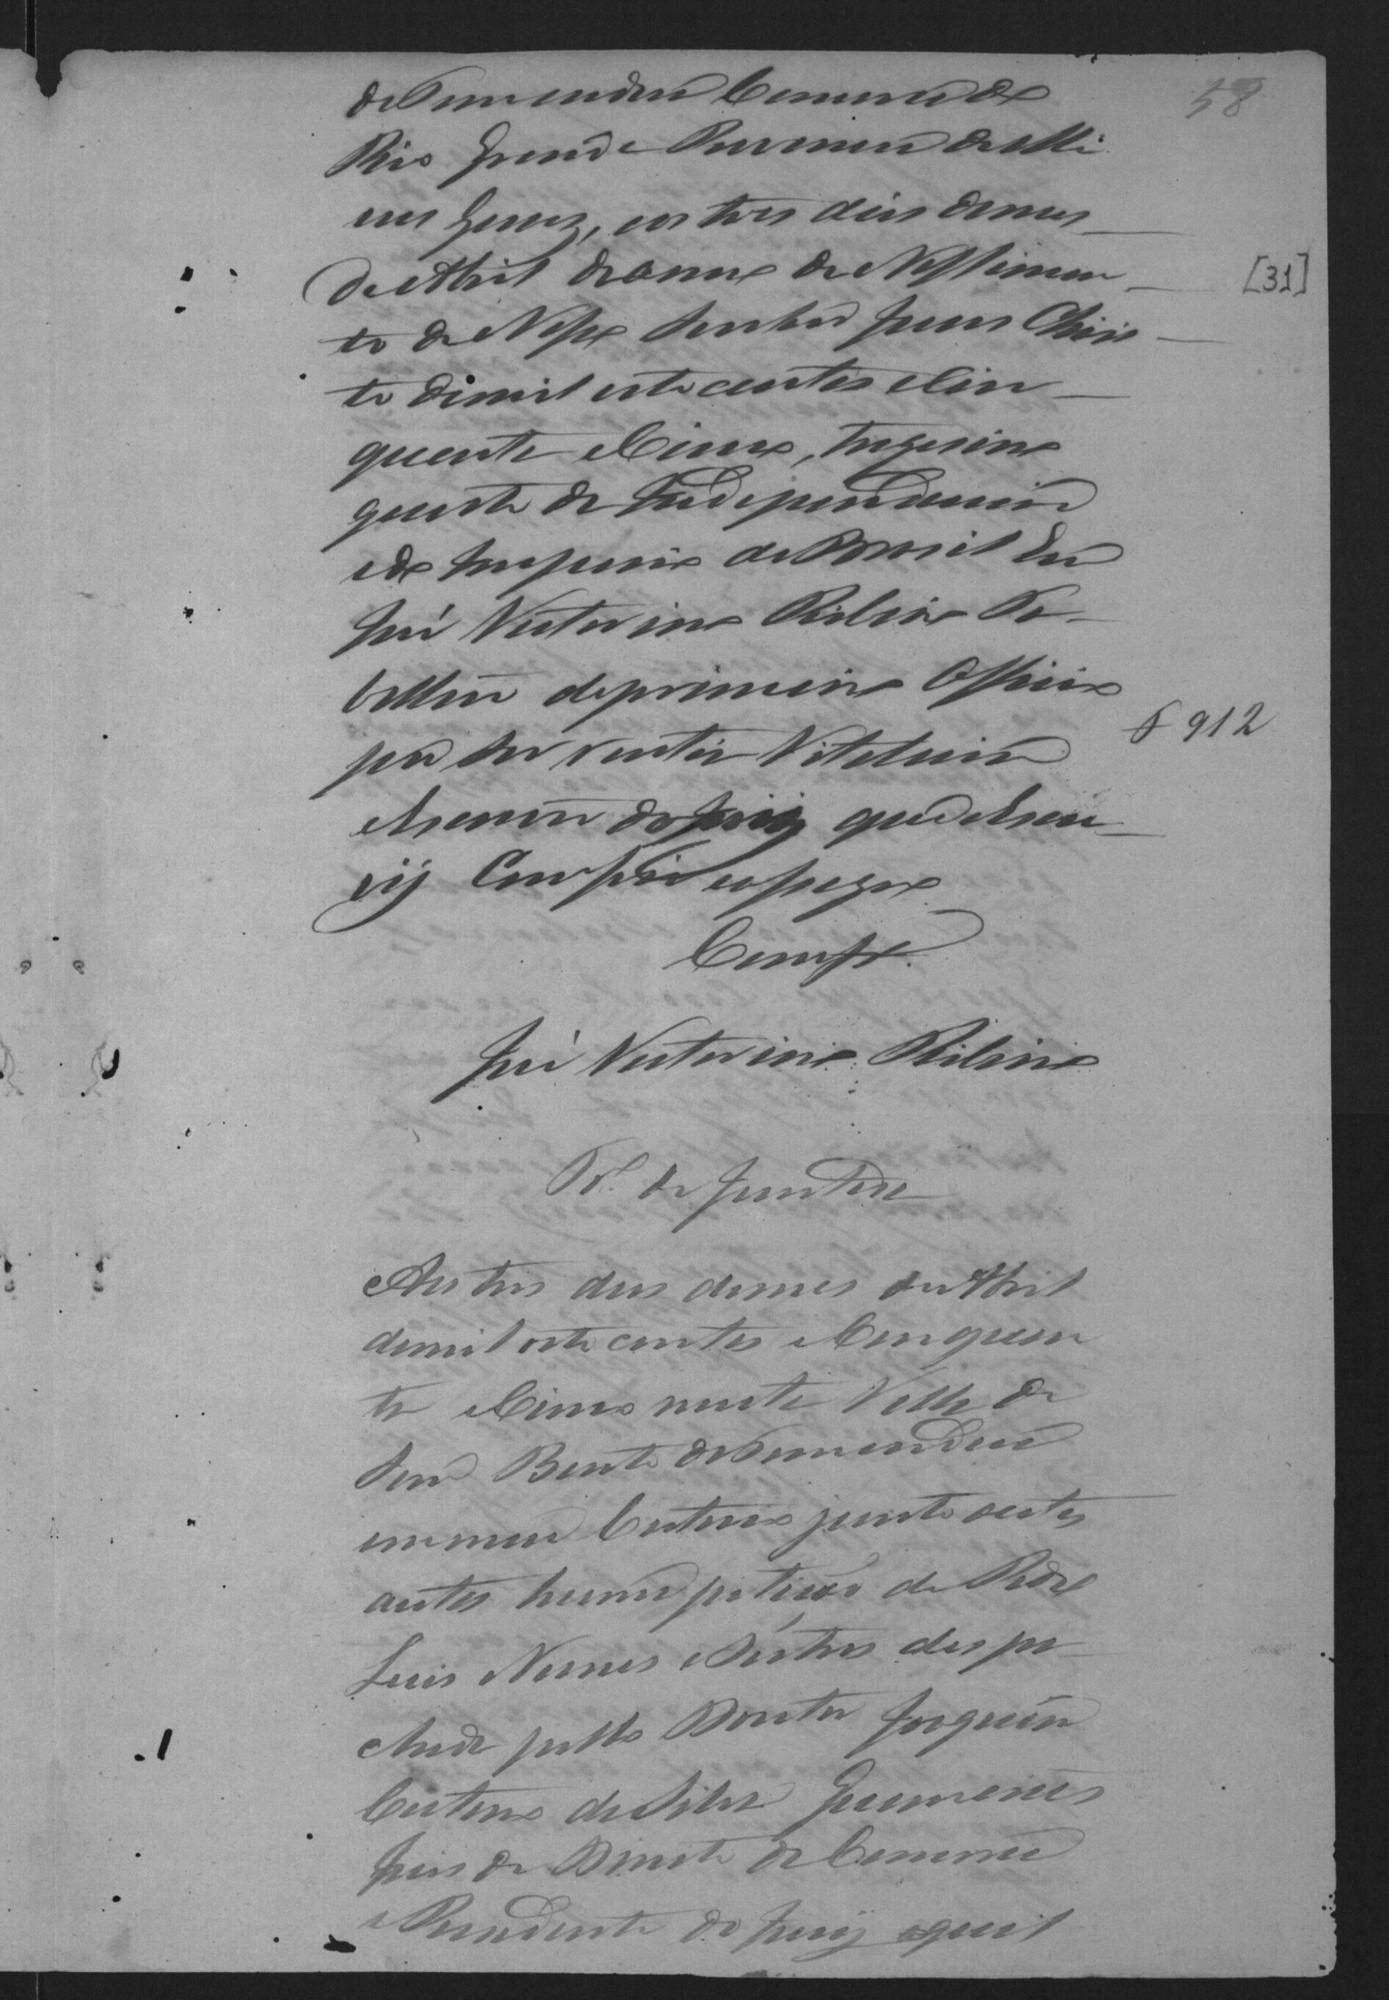 58
de Tamanduá Comarca do
Rio Grande Provincia de Mi
nas Geraes, aos tres dias do mes
de Abril do anno do Nassimen
[31]
to de Nosso Senhor Jesus Chris
to de mil oito centos e Cin
quenta e Cinco, trigesimo
quarto da Independencia
e do Imperio do Brasil Eu
José Victorino Ribeiro Ta
bellião do primeiro Officio
$ 912
por ser
escrivão do Juiz que o escre
vy Comferi e assigno
Comfe.
José Victorino Ribeiro
Tº. de Juntada
Aos tres dias do mes de Abril
de mil oito centos e Cinquen
ta e Cinco nesta Villa de
São Bento do Tamanduá
em meu Cartorio junto a estes
autos huma petição de Pedro
Luis Nunes e outros despa
chada pello Doutor Joaquim
Caetano da Silva Guimarães
Juis de Direito da Comarca
e Presidente do Jury a qual